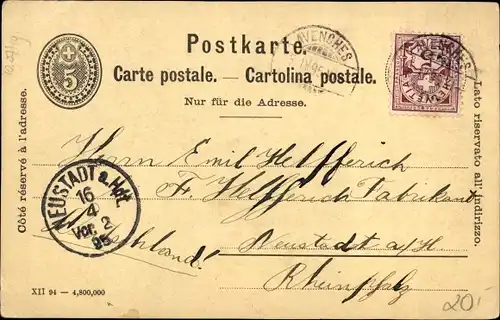 Postkarte.
Carte postale. — Cartolina postale.
Nur für die Adresse.
5
AVENCHES
AVENCHES
HELVETIA
Côté réservé à l'adresse.
Lato riservato all' indirizzo.
Herrn Emil Helfferich
Fr. Helfferich Fabrikant
Neustadt a/H.
Rheinpfalz
Deutschland
NEUSTADT a. Hdt.
16
4
Vor. 2
95
XII 94 — 4,800,000
20.-